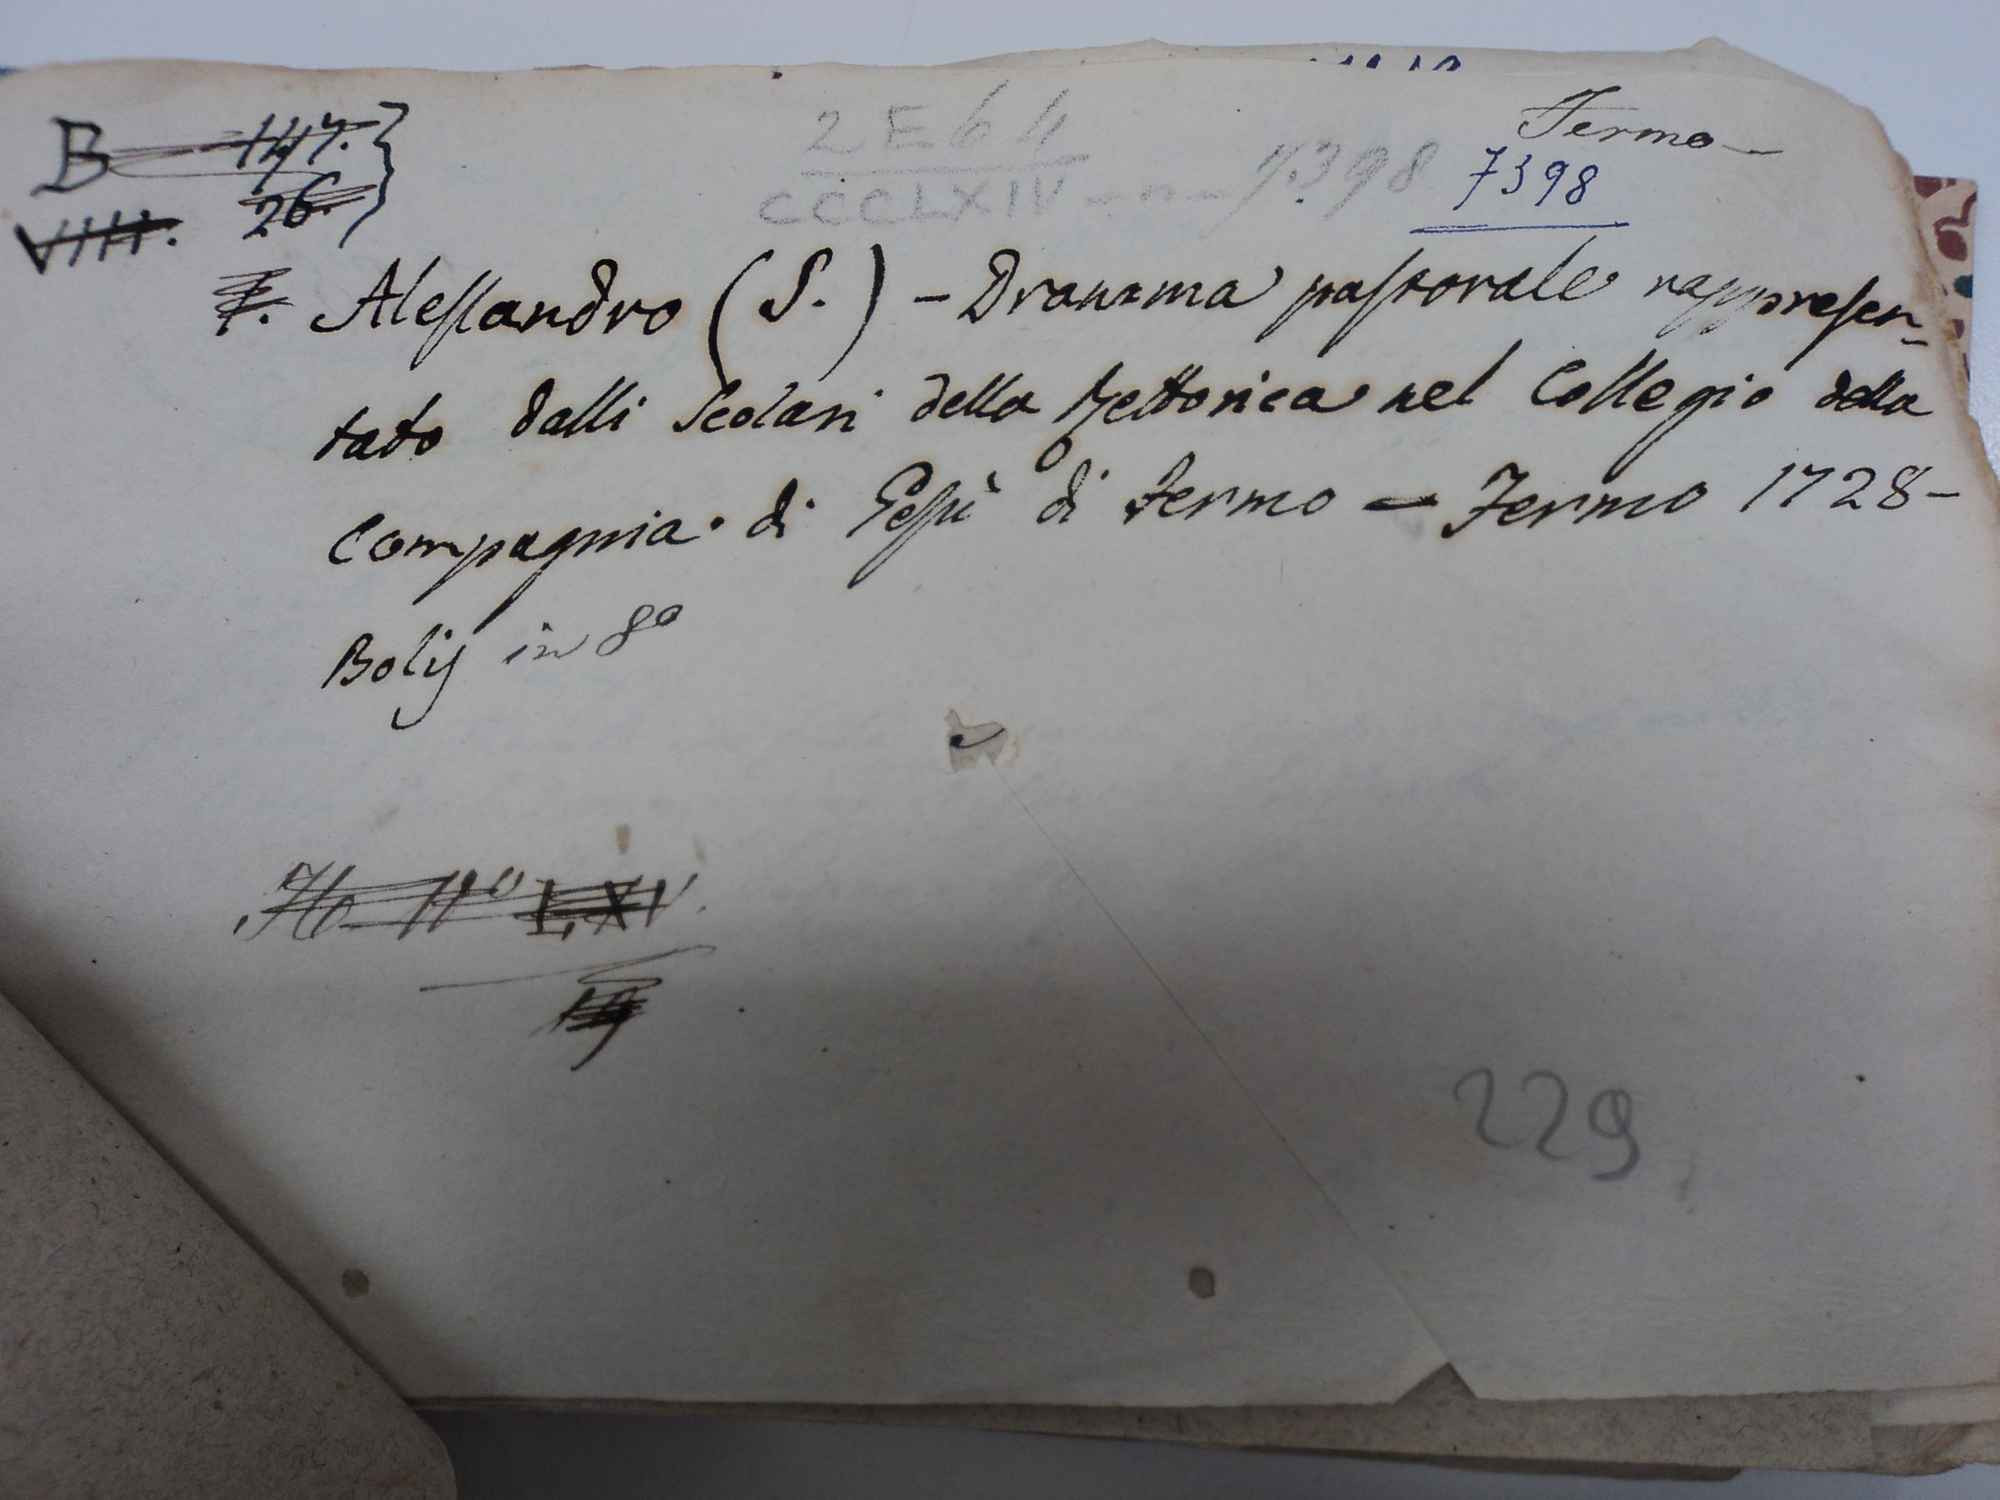 B 147.
VIIII. 26.
2E64
CCCLXIV - n - 7398
Fermo -
7398
Alessandro (S.) - Dramma pastorale rappresen-
tato dalli Scolari della Rettorica nel Collegio della
Compagnia di Gesù di Fermo = Fermo 1728 -
Bolis in 8º
Nº LXIV.
19
229